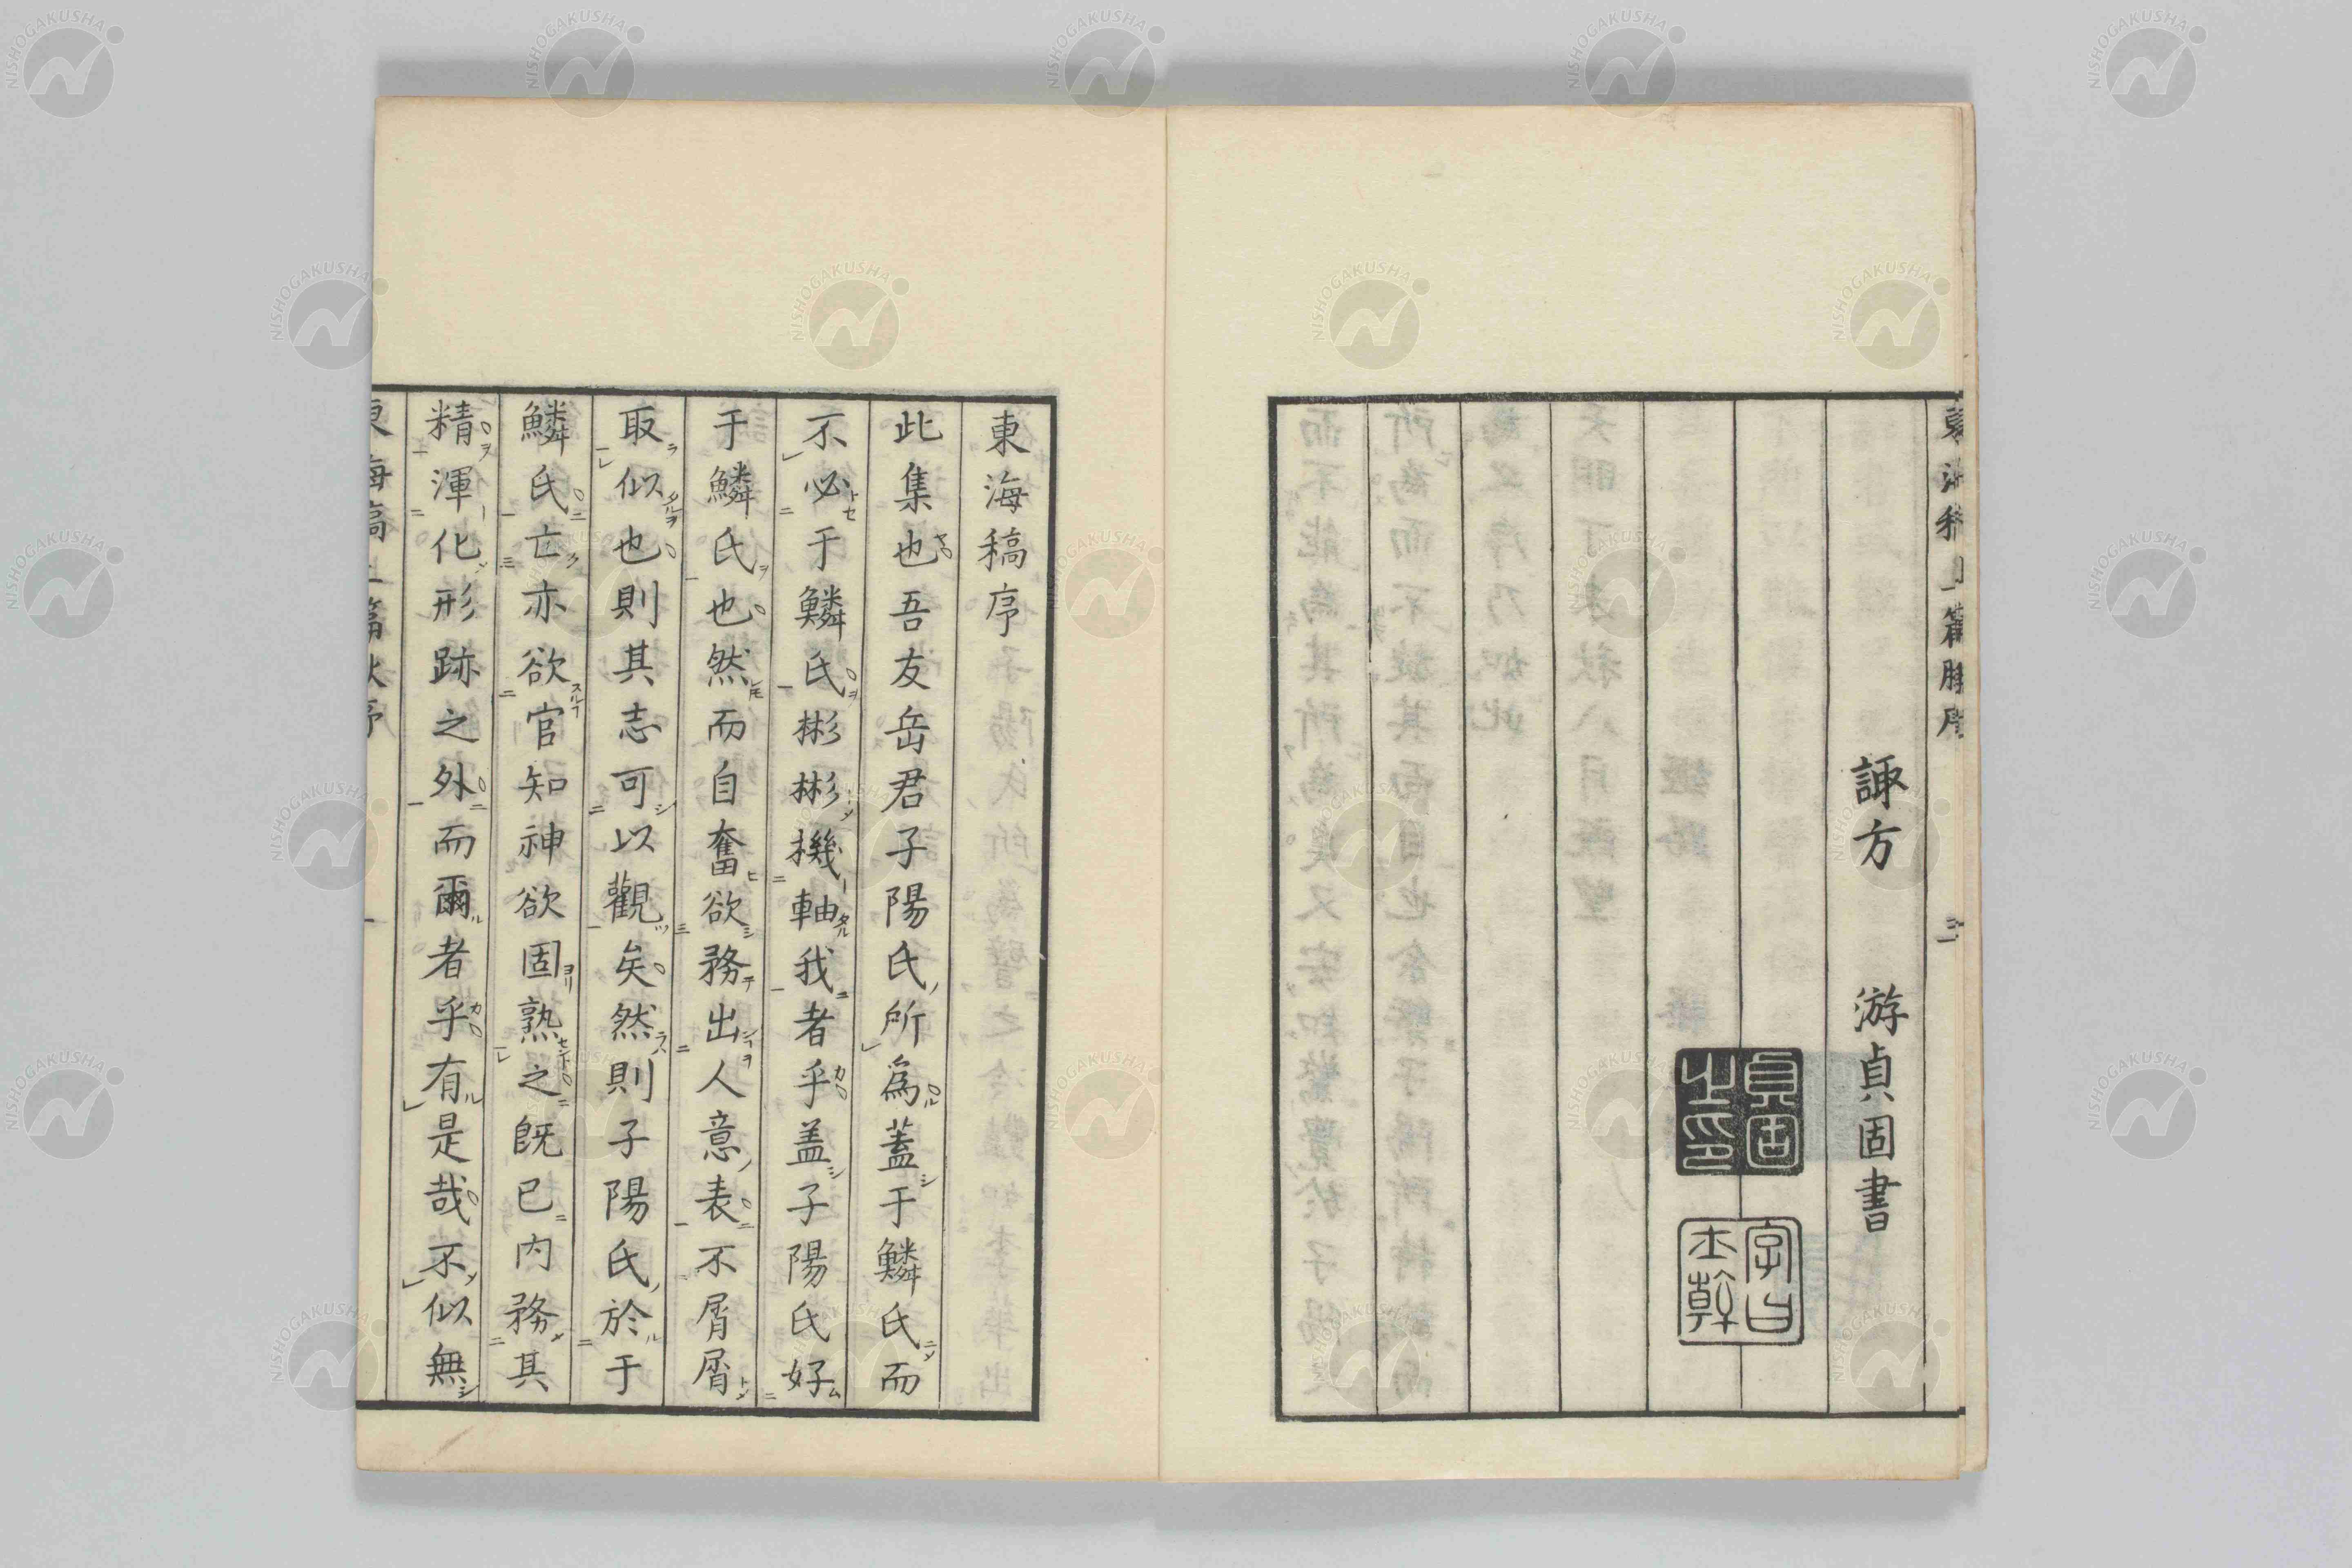 諏方 游貞固書
貞固之印
字曰士幹
東海稿序
此集也吾友岳君子陽氏所為蓋于鱗氏而
不必于鱗氏彬彬機軸我者乎盖子陽氏好
于鱗氏也然而自奮欲務出人意表不屑屑
取似也則其志可以觀矣然則子陽氏於于
鱗氏亡亦欲官知神欲固熟之既已內務其
精渾化形跡之外而爾者乎有是哉不似無
NISHOGAKUSHA